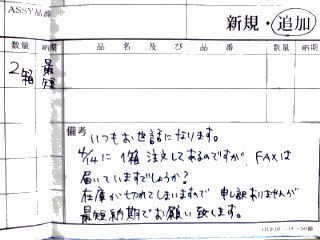 ASSY品番
新規・追加
数量 納期 品名及び品番 数量 納期
2箱 最短
備考
いつもお世話になります。
4/14に 1箱 注文してあるのですが FAXは
届いていますでしょうか?
在庫が切れてしまいますので 申し訳ありませんが
最短納期でお願い致します。